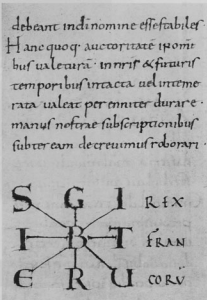 debeant indi nomine esse stabiles·
Hanc quoq· auctoritatē ꝓ omi
bus valeturā· in nris & futuris
temporibus intacta vel inteme
rata valeat per enniter durare·
manus nostrae subscriptionibus
subter eam decrevimus roborari·
S G I REX
I B T FRAN
E R U CORŪ